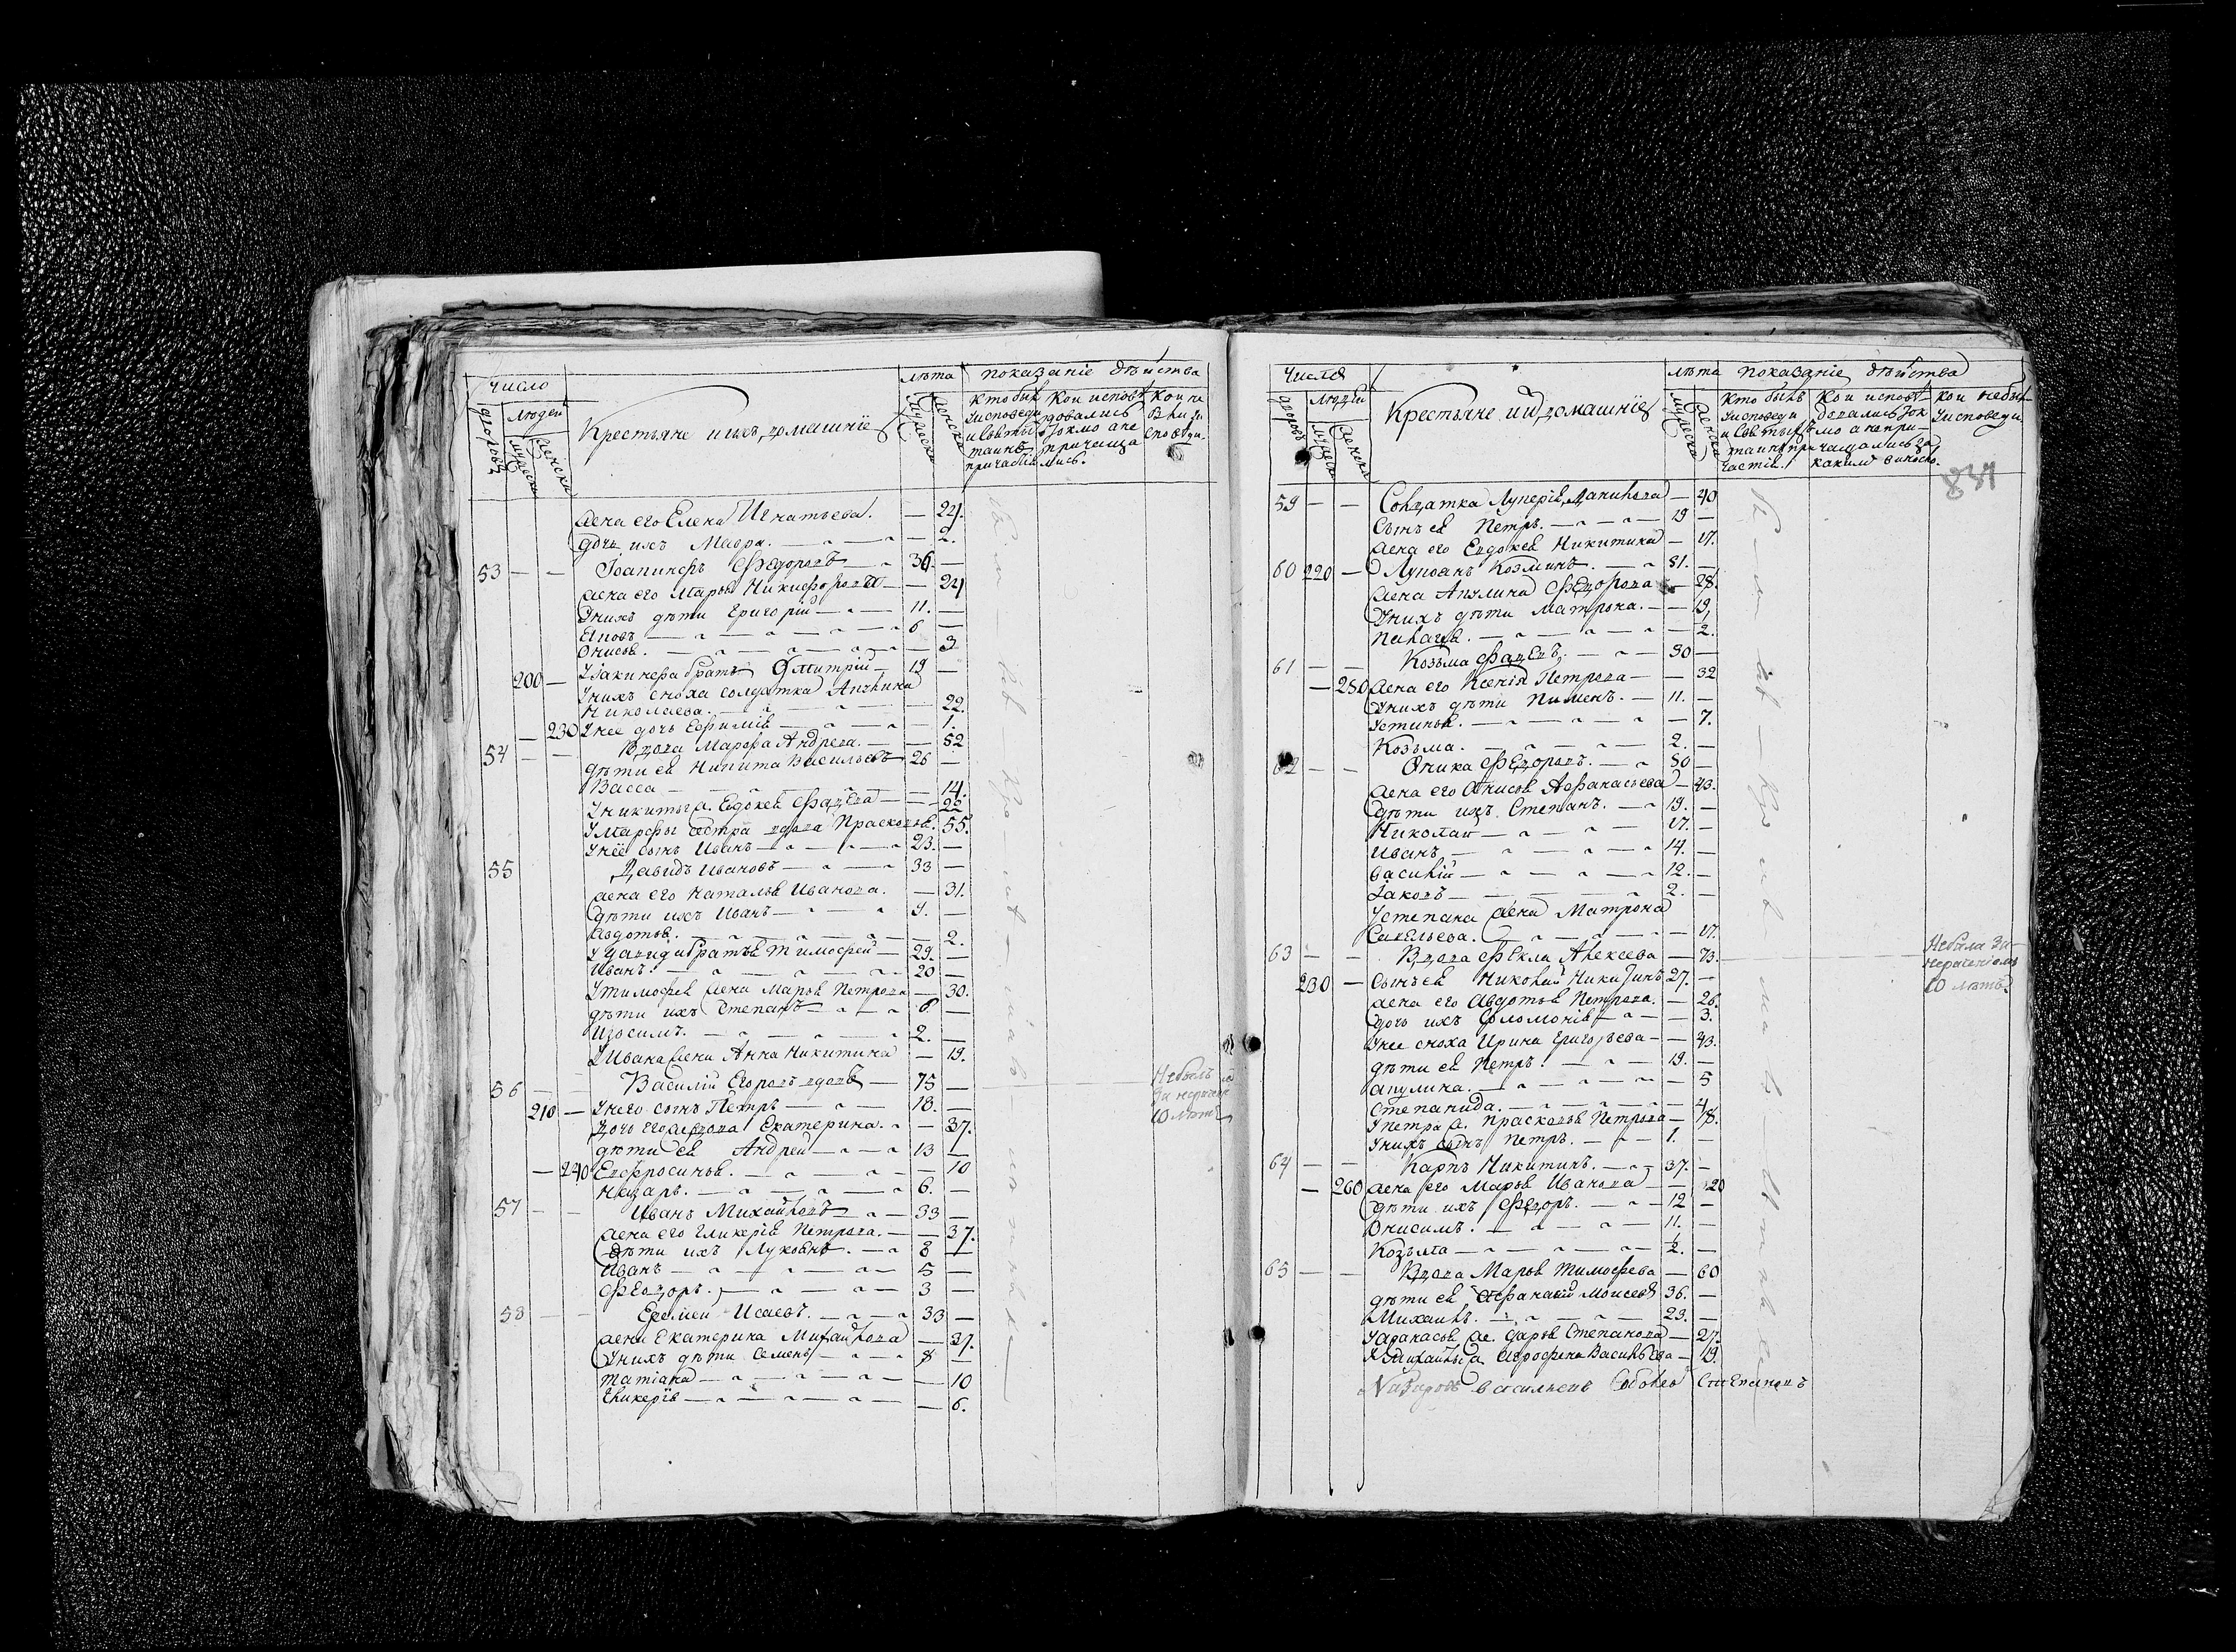 Число
Людей
дворовъ
мужеска
женска
Крестьяне и ихъ домашнiе
лѣта
мужеска
женска
показанiе дѣйства
Кто былъ у исповеди и святыхъ таинъ причастiя
Кои исповѣдовались токмо а не причащались.
Кои не были у исповѣди.
жена его Елена Игнатьева. — 24.
дочь ихъ Мавра. — 2.
53 — — Иоакинѳъ Федоровъ 36. —
жена его Марья Никифорова — 24
У нихъ дѣти Григорiй — 11. —
Яковъ — 6 —
Онисья. — 3
200 — У Иакинѳа братъ Дмитрiй — 19 —
У нихъ сноха солдатка Акилина
Николаева. — 22.
— 230 У нее дочь Ефимiя — 1.
54 — — Вдова Марфа Андреева. — 52
дѣти ея Никита Васильевъ 26 —
Васса — 14.
У Никиты ж. Евдокея Фадѣева — 22
У Марфы сестра вдова Прасковья. 55.
У неё сынъ Иванъ — 23. —
55 Давидъ Ивановъ — 33 —
жена его Наталья Иванова. — 31.
дѣти ихъ Иванъ — —
Авдотья. — 2.
У Давида братья Тимофей — 29. —
Иванъ. — 20 —
У Тимофея жена Марья Петрова — 30.
дѣти ихъ Степанъ — 6 —
Изосимъ. — 2. —
У Ивана жена Анна Никитина — 19.
56 — — Василiй Егоровъ вдовъ — 75 —
Небылъ
10 лѣтъ
210 — У него сынъ Петръ — 18. —
дочь его вдова Екатерина. — 37.
дѣти ея Андрей — 13 —
— 240 Евфросинья. — 10
Назаръ. — 6. —
57 — — Иванъ Михайловъ — 33 —
жена его Гликерiя Петрова. — 37.
дѣти ихъ Лукоянъ. — 8 —
Иванъ — 5 —
Федоръ. — 3 —
58 — — Еремей Исаевъ. — 33 —
жена Екатерина Михайлова — 37.
У нихъ дѣти Семенъ — 8 —
Татiана — 10
Гликерiя — 6.
Числа
Людей
дворовъ
мужеска
женска
Крестьяне и их домашнiе
лѣта
мужеска
женска
показанiе дѣйства
Кто былъ у исповеди и святыхъ таинъ причастiя.
Кои исповѣдовались токмо а не причащались за какимъ виносл.
Кои небыли у исповеди
841
59 — — Солдатка Лукерiя Данилова — 40
Сынъ ея Петръ. — 19 —
жена его Евдокея Никитина — 17.
60 220 — Лукоянъ Козминъ. — 31. —
жена Акулина Федорова — 28.
У нихъ дѣти Матрона. — 19,
Пелагея. — 2.
61 — — Козьма Фадѣевъ. — 30 —
— 250 жена его Ксенiя Петрова — — 32
У нихъ дѣти Пименъ. — 11. —
Устинья. — 7.
Козьма. — 2. —
62 — — Оника Федоровъ. — 50 —
жена его Анисья Афанасьева — 43.
дѣти ихъ Степанъ. — 19. —
Николай — 17. —
Иванъ — 14. —
Василiй — 12. —
Iаковъ — 2. —
У Степана жена Матрона
Савельева. — 17.
63 — — Вдова Фекла Алексеева — 73.
Небыла за
10 лѣтъ
230 — Сынъ ея Николай Никитинъ 27. —
жена его Авдотья Петрова. — 26.
дочь ихъ Соломонiя — 3.
У нее сноха Ирина Григорьева — 43.
дѣти ея Петръ. — 19. —
Акулина. — 5
Степанида. — 4
У Петра ж. Прасковья Петрова — 18.
У нихъ сынъ Петръ. — 1. —
64 — — Карпъ Никитинъ. — 37. —
— 260 жена его Марья Иванова — 20
дѣти ихъ Федоръ. — 12 —
Онисимъ. — 11. —
Козьма — 2. —
65 — — Вдова Марья Тимофеева — 60
дѣти ея Афанасiй Моисеевъ 36. —
Михаилъ. — 23. —
У Афанасья ж. Дарья Степанова — 27.
У Михайлы ж. Агрофена Васильева — 19.